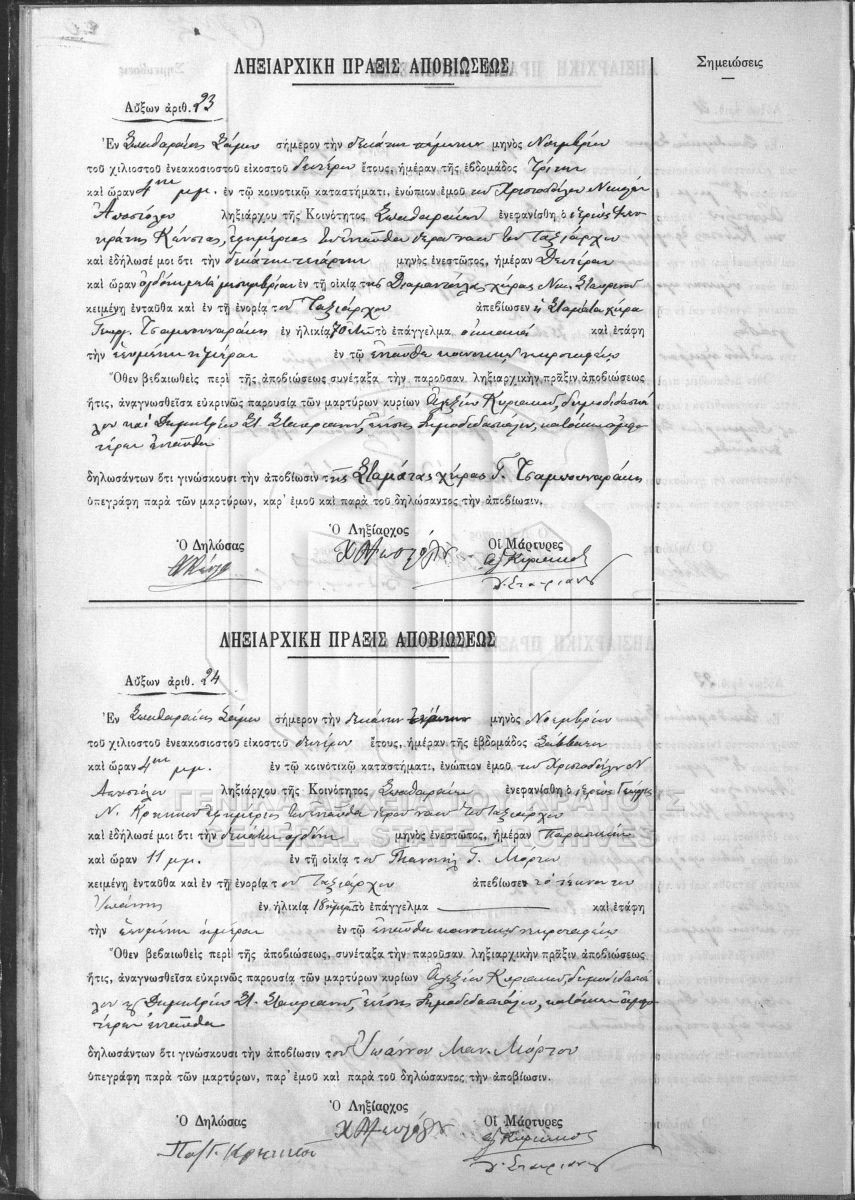 ΛΗΞΙΑΡΧΙΚΗ ΠΡΑΞΙΣ ΑΠΟΒΙΩΣΕΩΣ
Σημειώσεις
Αὔξων ἀριθ. 23
Ἐν Σπαθαραίοις Σάμου σήμερον τὴν δεκάτην πέμπτην μηνὸς Νοεμβρίου
τοῦ χιλιοστοῦ ἐνεακοσιοστοῦ εἰκοστοῦ δευτέρου ἔτους, ἡμέραν τῆς ἑβδομάδος Τρίτην
καὶ ὥραν 4ην μ.μ. ἐν τῷ κοινοτικῷ καταστήματι, ἐνώπιον ἐμοῦ τοῦ Χριστοδούλου Νικολάου
Ἀποστόλου ληξιάρχου τῆς Κοινότητος Σπαθαραίων ἐνεφανίσθη ὁ ἱερεὺς
ἐφημέριος τοῦ ἐνταῦθα ἱεροῦ ναοῦ τοῦ Ταξιάρχου
καὶ ἐδήλωσέ μοι ὅτι τὴν δεκάτην τετάρτην μηνὸς ἐνεστῶτος, ἡμέραν Δευτέραν
καὶ ὥραν ὀγδόην μετὰ μεσημβρίαν ἐν τῇ οἰκίᾳ τῆς Διαμαντούλας χήρας Νικ. Σταυρινοῦ
κειμένῃ ἐνταῦθα καὶ ἐν τῇ ἐνορίᾳ τοῦ Ταξιάρχου ἀπεβίωσεν ἡ Σταμάτα χήρα
Γεωργ. Τσαμπουναράκη ἐν ἡλικίᾳ 70 ἐτῶν τὸ ἐπάγγελμα οἰκιακὰ καὶ ἐτάφη
τὴν ἑπομένην ἡμέραν ἐν τῷ ἐνταῦθα κοινοτικῷ νεκροταφείῳ
Ὅθεν βεβαιωθεὶς περὶ τῆς ἀποβιώσεως συνέταξα τὴν παροῦσαν ληξιαρχικὴν πρᾶξιν ἀποβιώσεως
ἥτις, ἀναγνωσθεῖσα εὐκρινῶς παρουσίᾳ τῶν μαρτύρων κυρίων Ἀλεξίου Κυριακοῦ, δημοδιδασκά-
λου καὶ Δημητρίου Στ. Σταυριανοῦ, ἐπίσης δημοδιδασκάλου, κατοίκων ἀμφο-
τέρων ἐνταῦθα
δηλωσάντων ὅτι γινώσκουσι τὴν ἀποβίωσιν τῆς Σταμάτας χήρας Γ. Τσαμπουναράκη
ὑπεγράφη παρὰ τῶν μαρτύρων, παρ' ἐμοῦ καὶ παρὰ τοῦ δηλώσαντος τὴν ἀποβίωσιν.
Ὁ Δηλώσας
Ὁ Ληξίαρχος
Οἱ Μάρτυρες
Χ Ἀποστόλου
Ἀλ Κυριακος
Δ. Σταυριανὸς
ΛΗΞΙΑΡΧΙΚΗ ΠΡΑΞΙΣ ΑΠΟΒΙΩΣΕΩΣ
Αὔξων ἀριθ. 24
Ἐν Σπαθαραίοις Σάμου σήμερον τὴν δεκάτην μηνὸς Νοεμβρίου
τοῦ χιλιοστοῦ ἐνεακοσιοστοῦ εἰκοστοῦ δευτέρου ἔτους, ἡμέραν τῆς ἑβδομάδος Σάββατον
καὶ ὥραν 4ην μ.μ. ἐν τῷ κοινοτικῷ καταστήματι, ἐνώπιον ἐμοῦ τοῦ Χριστοδούλου Ν
Ἀποστόλου ληξιάρχου τῆς Κοινότητος Σπαθαραίων ἐνεφανίσθη ὁ ἱερεὺς Γεώργιος
Ν. Κρητικοῦ ἐφημέριος τοῦ ἐνταῦθα ἱεροῦ ναοῦ τοῦ Ταξιάρχου
καὶ ἐδήλωσέ μοι ὅτι τὴν δεκάτην ὀγδόην μηνὸς ἐνεστῶτος, ἡμέραν Παρασκευὴν
καὶ ὥραν 11 μ.μ. ἐν τῇ οἰκίᾳ τοῦ Γ. Μόρτου
κειμένῃ ἐνταῦθα καὶ ἐν τῇ ἐνορίᾳ τοῦ Ταξιάρχου ἀπεβίωσεν τὸ τέκνον του
Ἰωάννης ἐν ἡλικίᾳ 18 ἡμερῶν τὸ ἐπάγγελμα καὶ ἐτάφη
τὴν ἑπομένην ἡμέραν ἐν τῷ ἐνταῦθα κοινοτικῷ νεκροταφείῳ
Ὅθεν βεβαιωθεὶς περὶ τῆς ἀποβιώσεως, συνέταξα τὴν παροῦσαν ληξιαρχικὴν πρᾶξιν ἀποβιώσεως
ἥτις, ἀναγνωσθεῖσα εὐκρινῶς παρουσίᾳ τῶν μαρτύρων κυρίων Ἀλεξίου Κυριακοῦ, δημοδιδασκά-
λου κ Δημητρίου Στ. Σταυριανοῦ, ἐπίσης δημοδιδασκάλου, κατοίκων ἀμφο-
τέρων ἐνταῦθα
δηλωσάντων ὅτι γινώσκουσι τὴν ἀποβίωσιν τοῦ Ἰωάννου Μαν. Μόρτου
ὑπεγράφη παρὰ τῶν μαρτύρων, παρ' ἐμοῦ καὶ παρὰ τοῦ δηλώσαντος τὴν ἀποβίωσιν.
Ὁ Δηλώσας
Ὁ Ληξίαρχος
Οἱ Μάρτυρες
Χ Ἀποστόλου
Ἀλ Κυριακος
Δ. Σταυριανὸς
ΓΕΝΙΚΑ ΑΡΧΕΙΑ ΤΟΥ ΚΡΑΤΟΥΣ
GENERAL STATE ARCHIVES